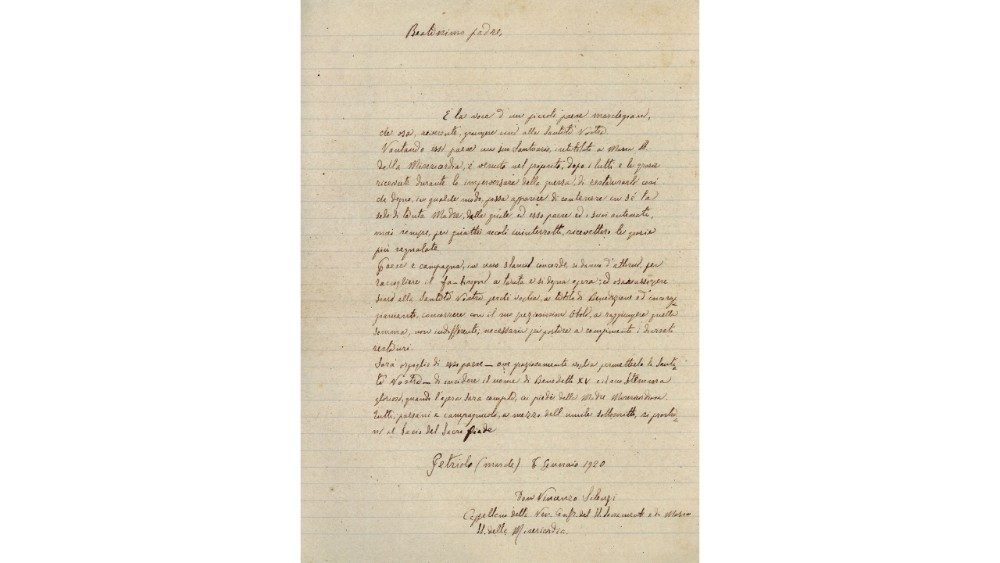 Beatissimo padre,
È la voce d'un piccolo paese marchegiano,
che osa, riverente, giungere sino alla Santità Vostra.
Vantando esso paese un suo Santuario, intitolato a Maria SS.
della Misericordia, è venuto nel proposito, dopo i lutti e le grazie
ricevute durante lo imperversare della guerra, di restaurarlo così
che degno, in qualche modo, possa apparire di contenere in sé la
sede di tanta Madre, dalla quale ed esso paese ed i suoi antenati,
mai sempre, per quattro secoli ininterrotti, ricevettero le grazie
più segnalate.
Paese e campagna, in uno slancio concorde, si danno d'attorno per
raccogliere il fabbisogno a tanta e sì degna opera: ed osano
alla Santità Vostra, perché voglia, a titolo di Benedizione ed incorag-
giamento, concorrere con il suo preziosissimo Obolo, a raggiungere quella
somma, non indifferente, necessaria per portare a compimento i
restauri.
Sarà orgoglio di esso paese — ove graziosamente voglia permetterlo la Santi-
tà Vostra — di incidere il nome di Benedetto XV e il suo stemma
glorioso, quando l'opera sarà compiuta, ai piedi della Madre Misericordiosa.
Tutti, paesani e campagnuoli, a mezzo dell'umile sottoscritto, si prostra-
no al bacio del Sacro piede
Petriolo (Marche) Gennaio 1920
Don Vincenzo
Cappellano della Ven. Conf. del SS. Sacramento e di Maria
SS. della Misericordia.